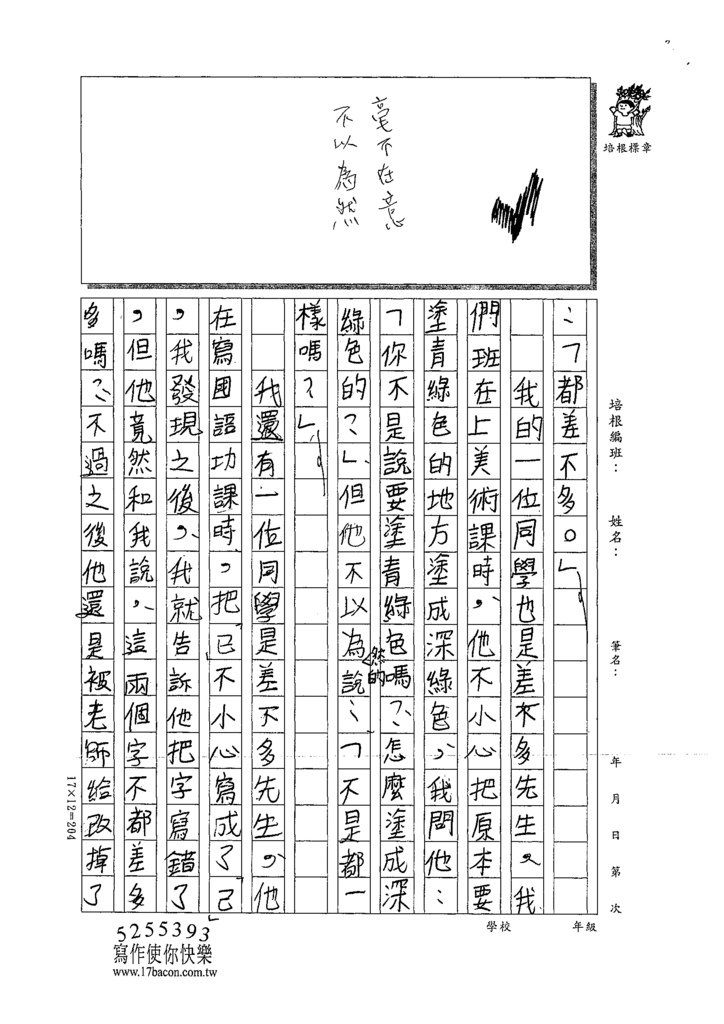 毫不在意
不以為然
培根標章
培根編班：
姓名：
筆名：
年 月 日 第 次
學校
年級
：「都差不多。」
我的一位同學也是差不多先生，我
們班在上美術課時，他不小心把原本要
塗青綠色的地方塗成深綠色，我問他：
「你不是說要塗青綠色嗎？怎麼塗成深
綠色的？」但他不以為然的說：「不是都一
樣嗎？」
我還有一位同學是差不多先生，他
在寫國語功課時，把「已」不小心寫成了「己」
，我發現之後，我就告訴他把字寫錯了
，但他竟然和我說，這兩個字不都差多
多嗎？不過之後他還是被老師給改掉了
17×12=204
5255393
寫作使你快樂
www.17bacon.com.tw